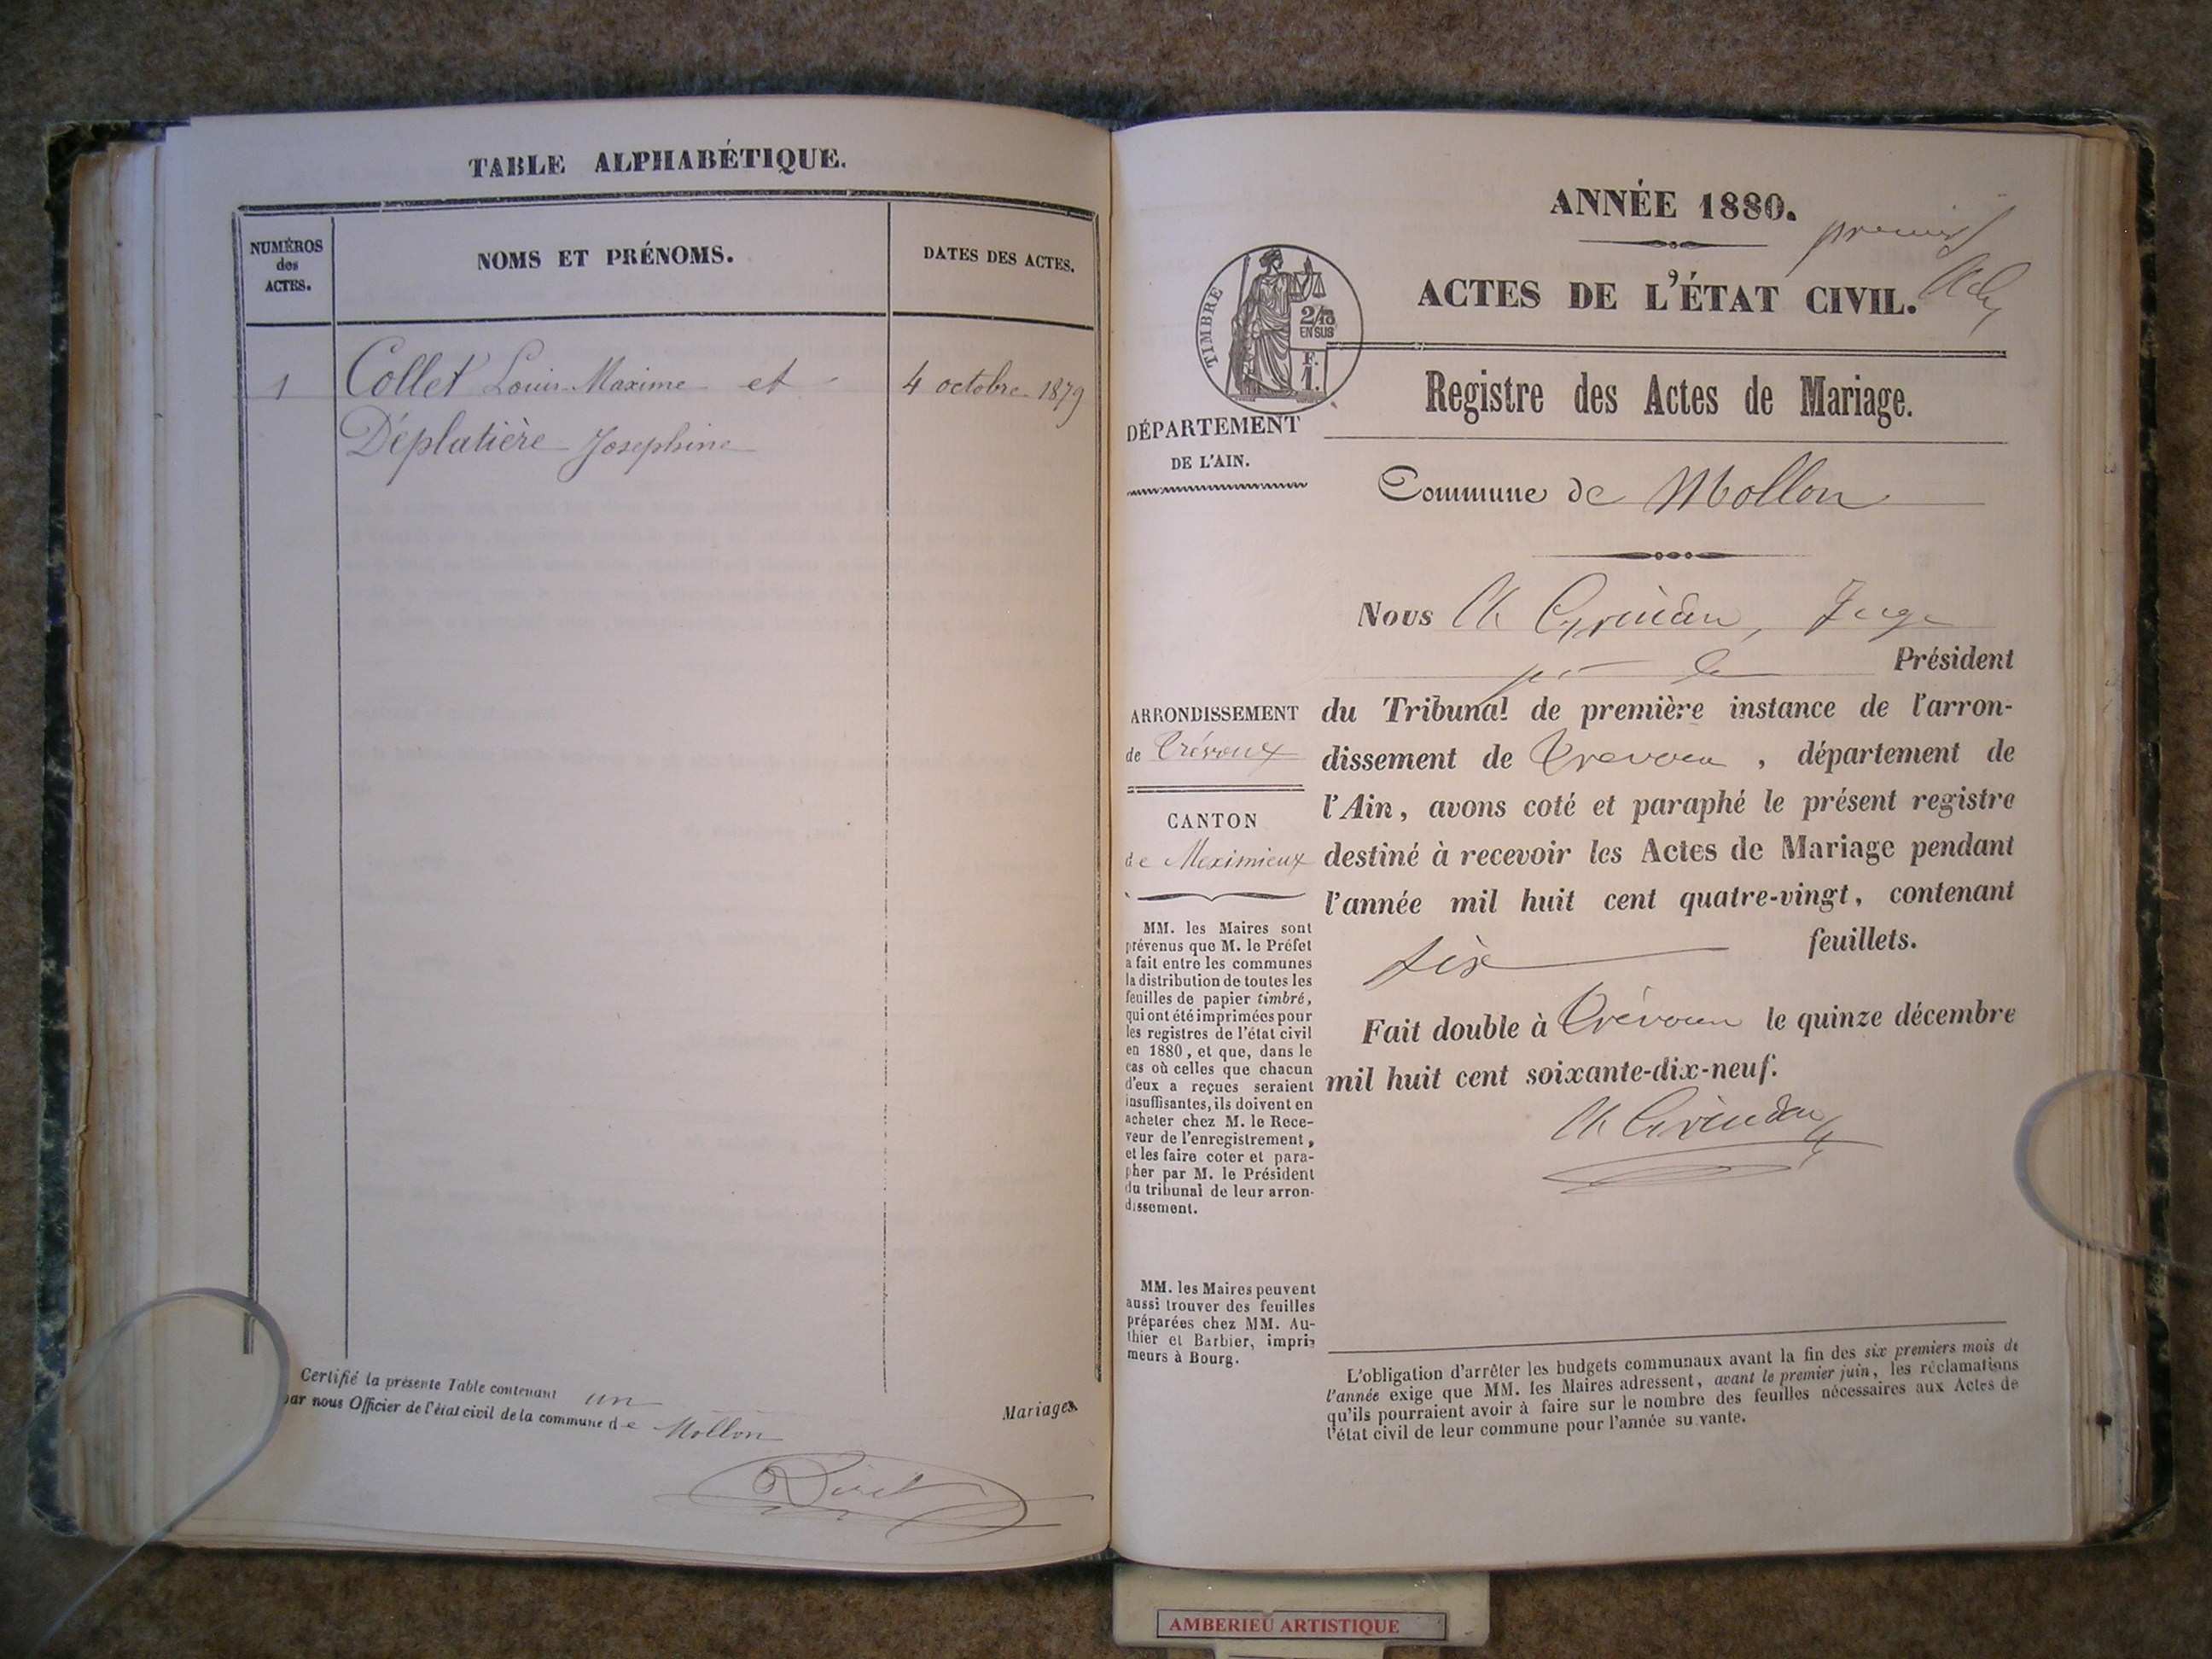 TABLE ALPHABÉTIQUE.
NUMÉROS
des
ACTES.
NOMS ET PRÉNOMS.
DATES DES ACTES.
1
Collet Louis-Maxime et
4 octobre 1879
Déplatière Josephine
Certifié la présente Table contenant un
Mariages
par nous Officier de l'état civil de la commune de Mollon
ANNÉE 1880.
premier
ACTES DE L'ÉTAT CIVIL.
TIMBRE
2/10
EN SUS
F.
1.
Registre des Actes de Mariage.
DÉPARTEMENT
DE L'AIN.
Commune de Mollon
Nous Juge
Président
ARRONDISSEMENT
de Trévoux
CANTON
de Meximieux
MM. les Maires sont
prévenus que M. le Préfet
a fait entre les communes
la distribution de toutes les
feuilles de papier timbré,
qui ont été imprimées pour
les registres de l'état civil
en 1880, et que, dans le
cas où celles que chacun
d'eux a reçues seraient
insuffisantes, ils doivent en
acheter chez M. le Rece-
veur de l'enregistrement,
et les faire coter et para-
pher par M. le Président
du tribunal de leur arron-
dissement.
MM. les Maires peuvent
aussi trouver des feuilles
préparées chez MM. Au-
thier et Barbier, impri-
meurs à Bourg.
du Tribunal de première instance de l'arron-
dissement de Trevoux, département de
l'Ain, avons coté et paraphé le présent registre
destiné à recevoir les Actes de Mariage pendant
l'année mil huit cent quatre-vingt, contenant
six feuillets.
Fait double à Trévoux le quinze décembre
mil huit cent soixante-dix-neuf.
L'obligation d'arrêter les budgets communaux avant la fin des six premiers mois de
l'année exige que MM. les Maires adressent, avant le premier juin, les réclamations
qu'ils pourraient avoir à faire sur le nombre des feuilles nécessaires aux Actes de
l'état civil de leur commune pour l'année su vante.
AMBERIEU ARTISTIQUE